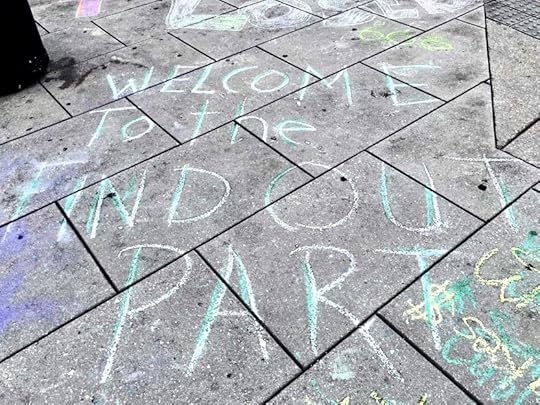 WELCOME
To the
FIND OUT
PART